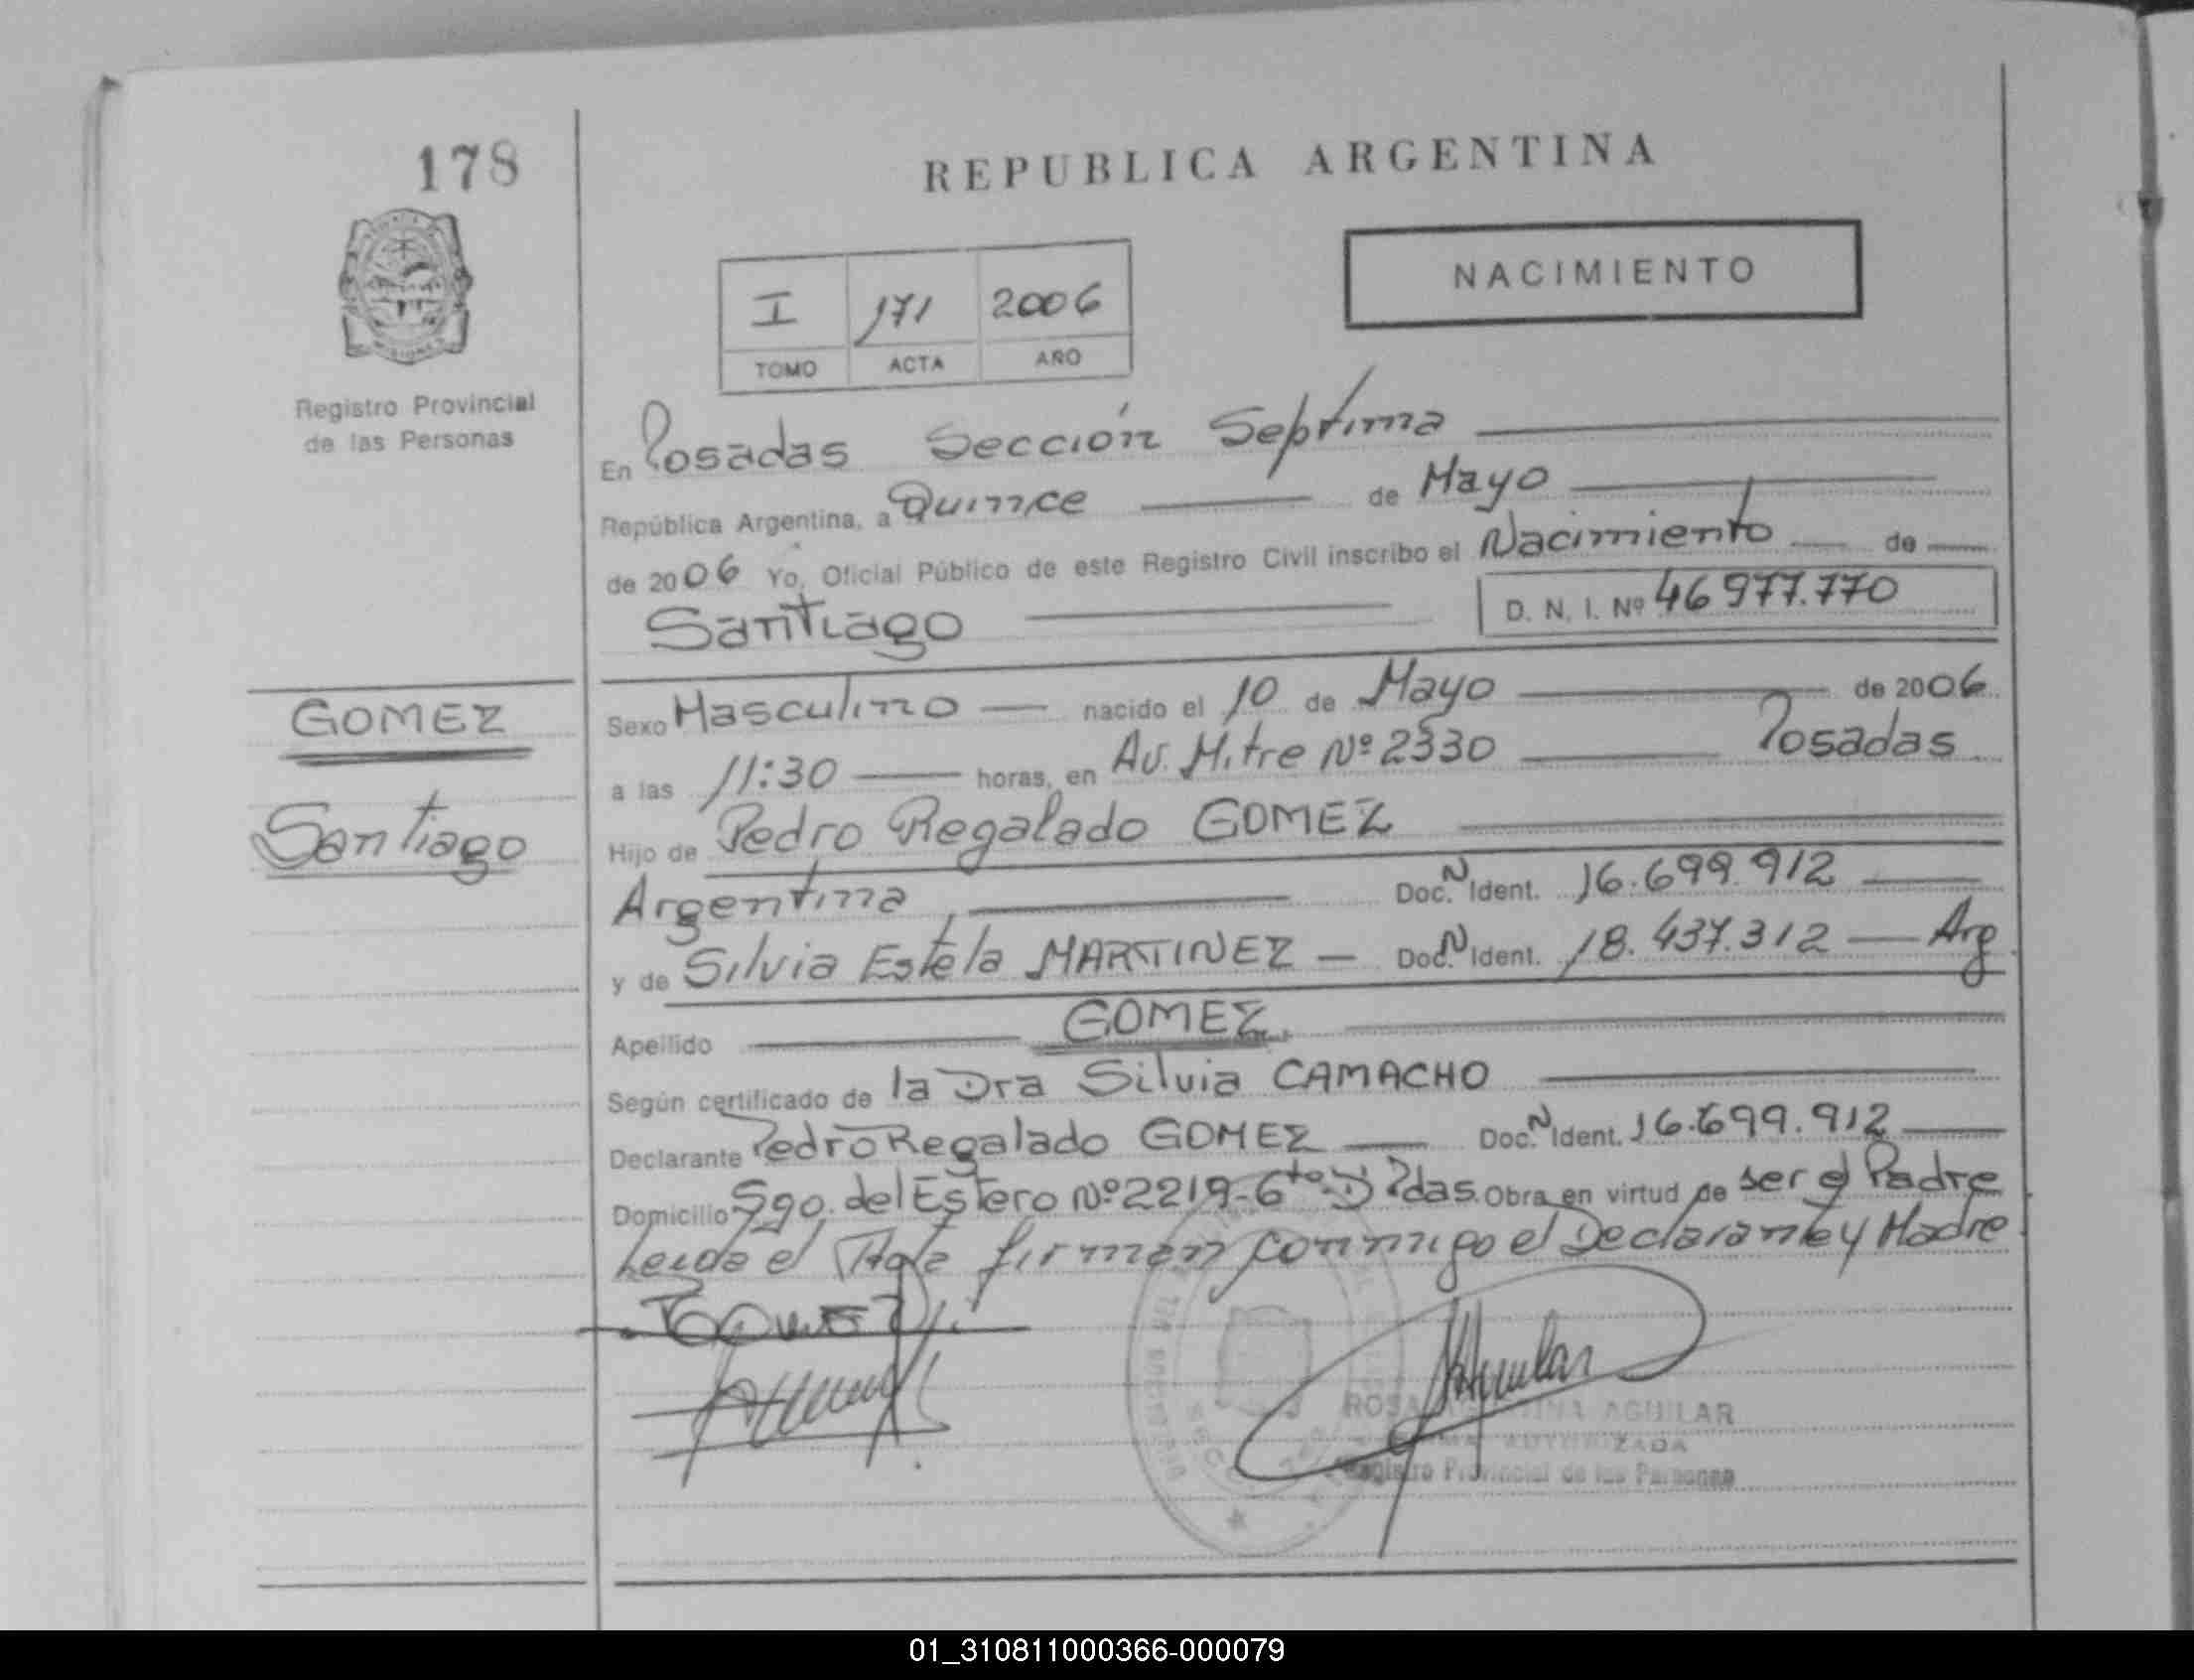 178
REPUBLICA ARGENTINA
NACIMIENTO
I 171 2006
TOMO ACTA AÑO
Registro Provincial
de las Personas
En Posadas Sección Septima
República Argentina, a Quince de Mayo
de 2006 Yo, Oficial Público de este Registro Civil inscribo el Nacimiento de
Santiago D. N. I. Nº 46977.770
GOMEZ
Santiago
Sexo Masculino nacido el 10 de Mayo de 2006
a las 11:30 horas, en Av. Mitre Nº 2330 Posadas
Hijo de Pedro Regalado GOMEZ
Argentina, Doc. N Ident. 16.699.912
y de Silvia Estela MARTINEZ Doc. N Ident. 18.437.312 Arg
Apellido GOMEZ
Según certificado de la Dra Silvia CAMACHO
Declarante Pedro Regalado GOMEZ Doc. N Ident. 16.699.912
Domicilio Sgo. del Estero Nº 2219-6to D Pdas. Obra en virtud de ser el Padre
Leida el Acta firman conmigo el Declarante y Madre
GOMEZ
ROSA AGUILAR
AUTORIZADA
Registro Provincial de las Personas
01_310811000366-000079